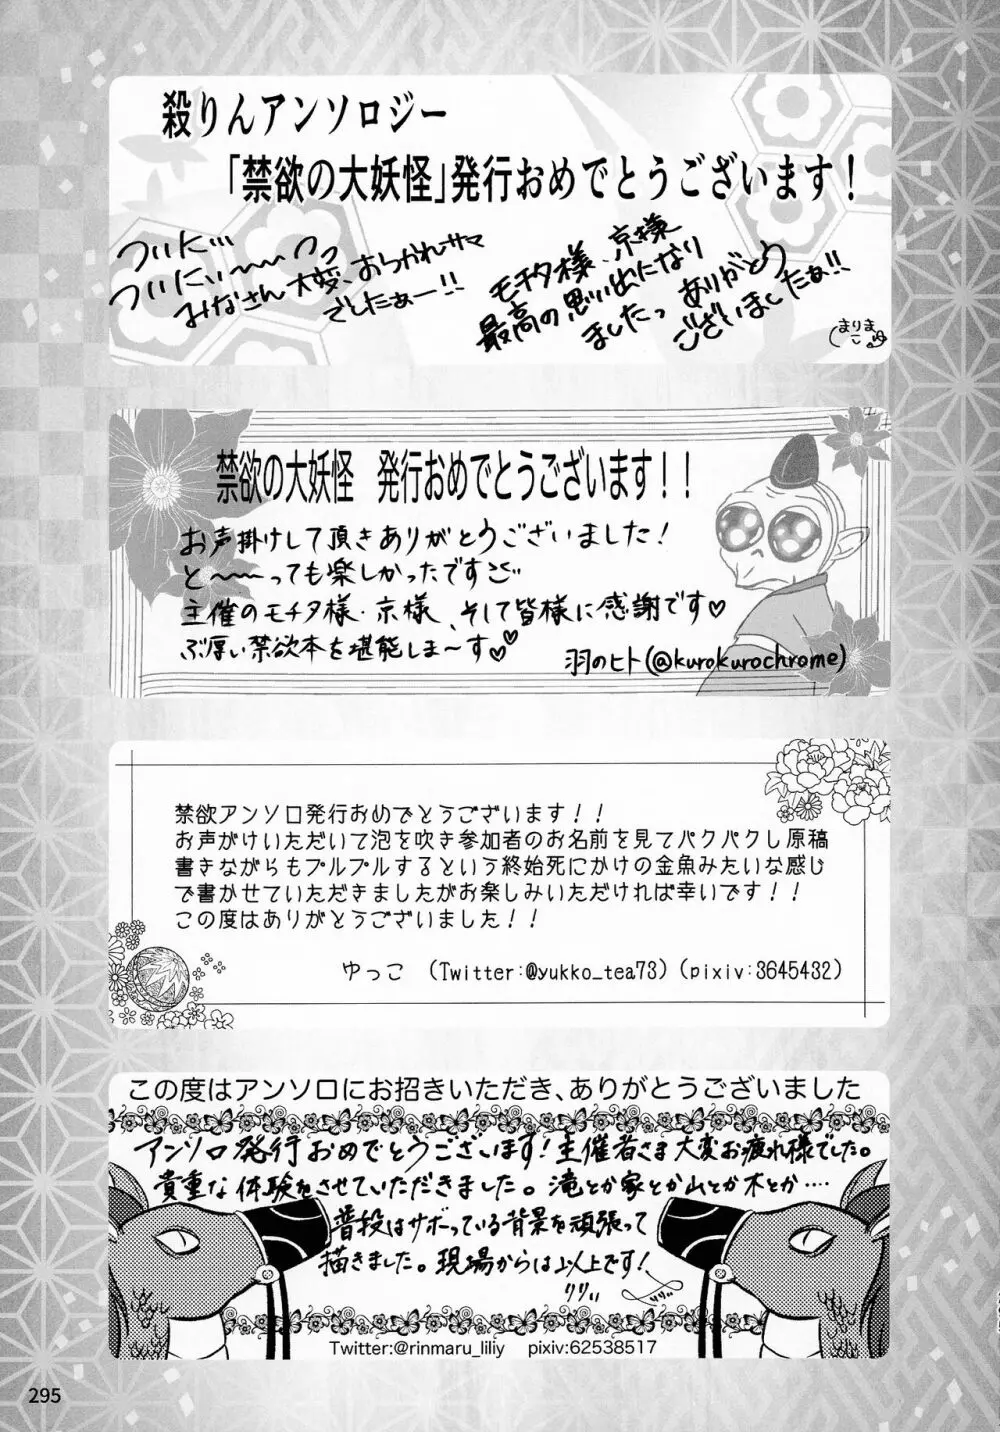 殺りんアンソロジー
「禁欲の大妖怪」発行おめでとうございます！
ついに…
ついにぃ〜〜っっ
みなさん大変、おつかれサマ
でしたぁー!!
モチタ様、京様
最高の思い出になり
ましたっ ありがとう
ございましたぁ!!
まりまこ
禁欲の大妖怪 発行おめでとうございます！！
お声掛けして頂きありがとうございました！
と〜〜〜っても楽しかったです
主催のモチタ様・京様、そして皆様に感謝です♡
ぶ厚い禁欲本を堪能しま〜す♡♡
羽のヒト(@kurokurochrome)
禁欲アンソロ発行おめでとうございます！！
お声がけいただいて泡を吹き参加者のお名前を見てパクパクし原稿
書きながらもプルプルするという終始死にかけの金魚みたいな感じ
で書かせていただきましたがお楽しみいただければ幸いです！！
この度はありがとうございました！！
ゆっこ (Twitter:@yukko_tea73)(pixiv:3645432)
この度はアンソロにお招きいただき、ありがとうございました
アンソロ発行おめでとうございます！主催者さま大変お疲れ様でした。
貴重な体験をさせていただきました。滝とか家とか山とか木とか‥‥
普段はサボっている背景を頑張って
描きました。現場からは以上です！
リリぃ
Twitter:@rinmaru_liliy pixiv:62538517
295